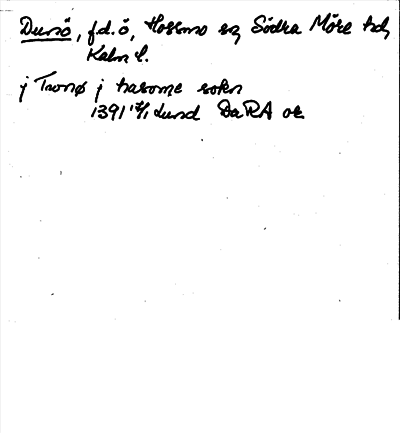 Dunö, f.d. ö, Hossmo sn, Södra Möre hd,
Kalm l.
j Twnø j hasome sokn
1391 17/1 Lund DaRA or